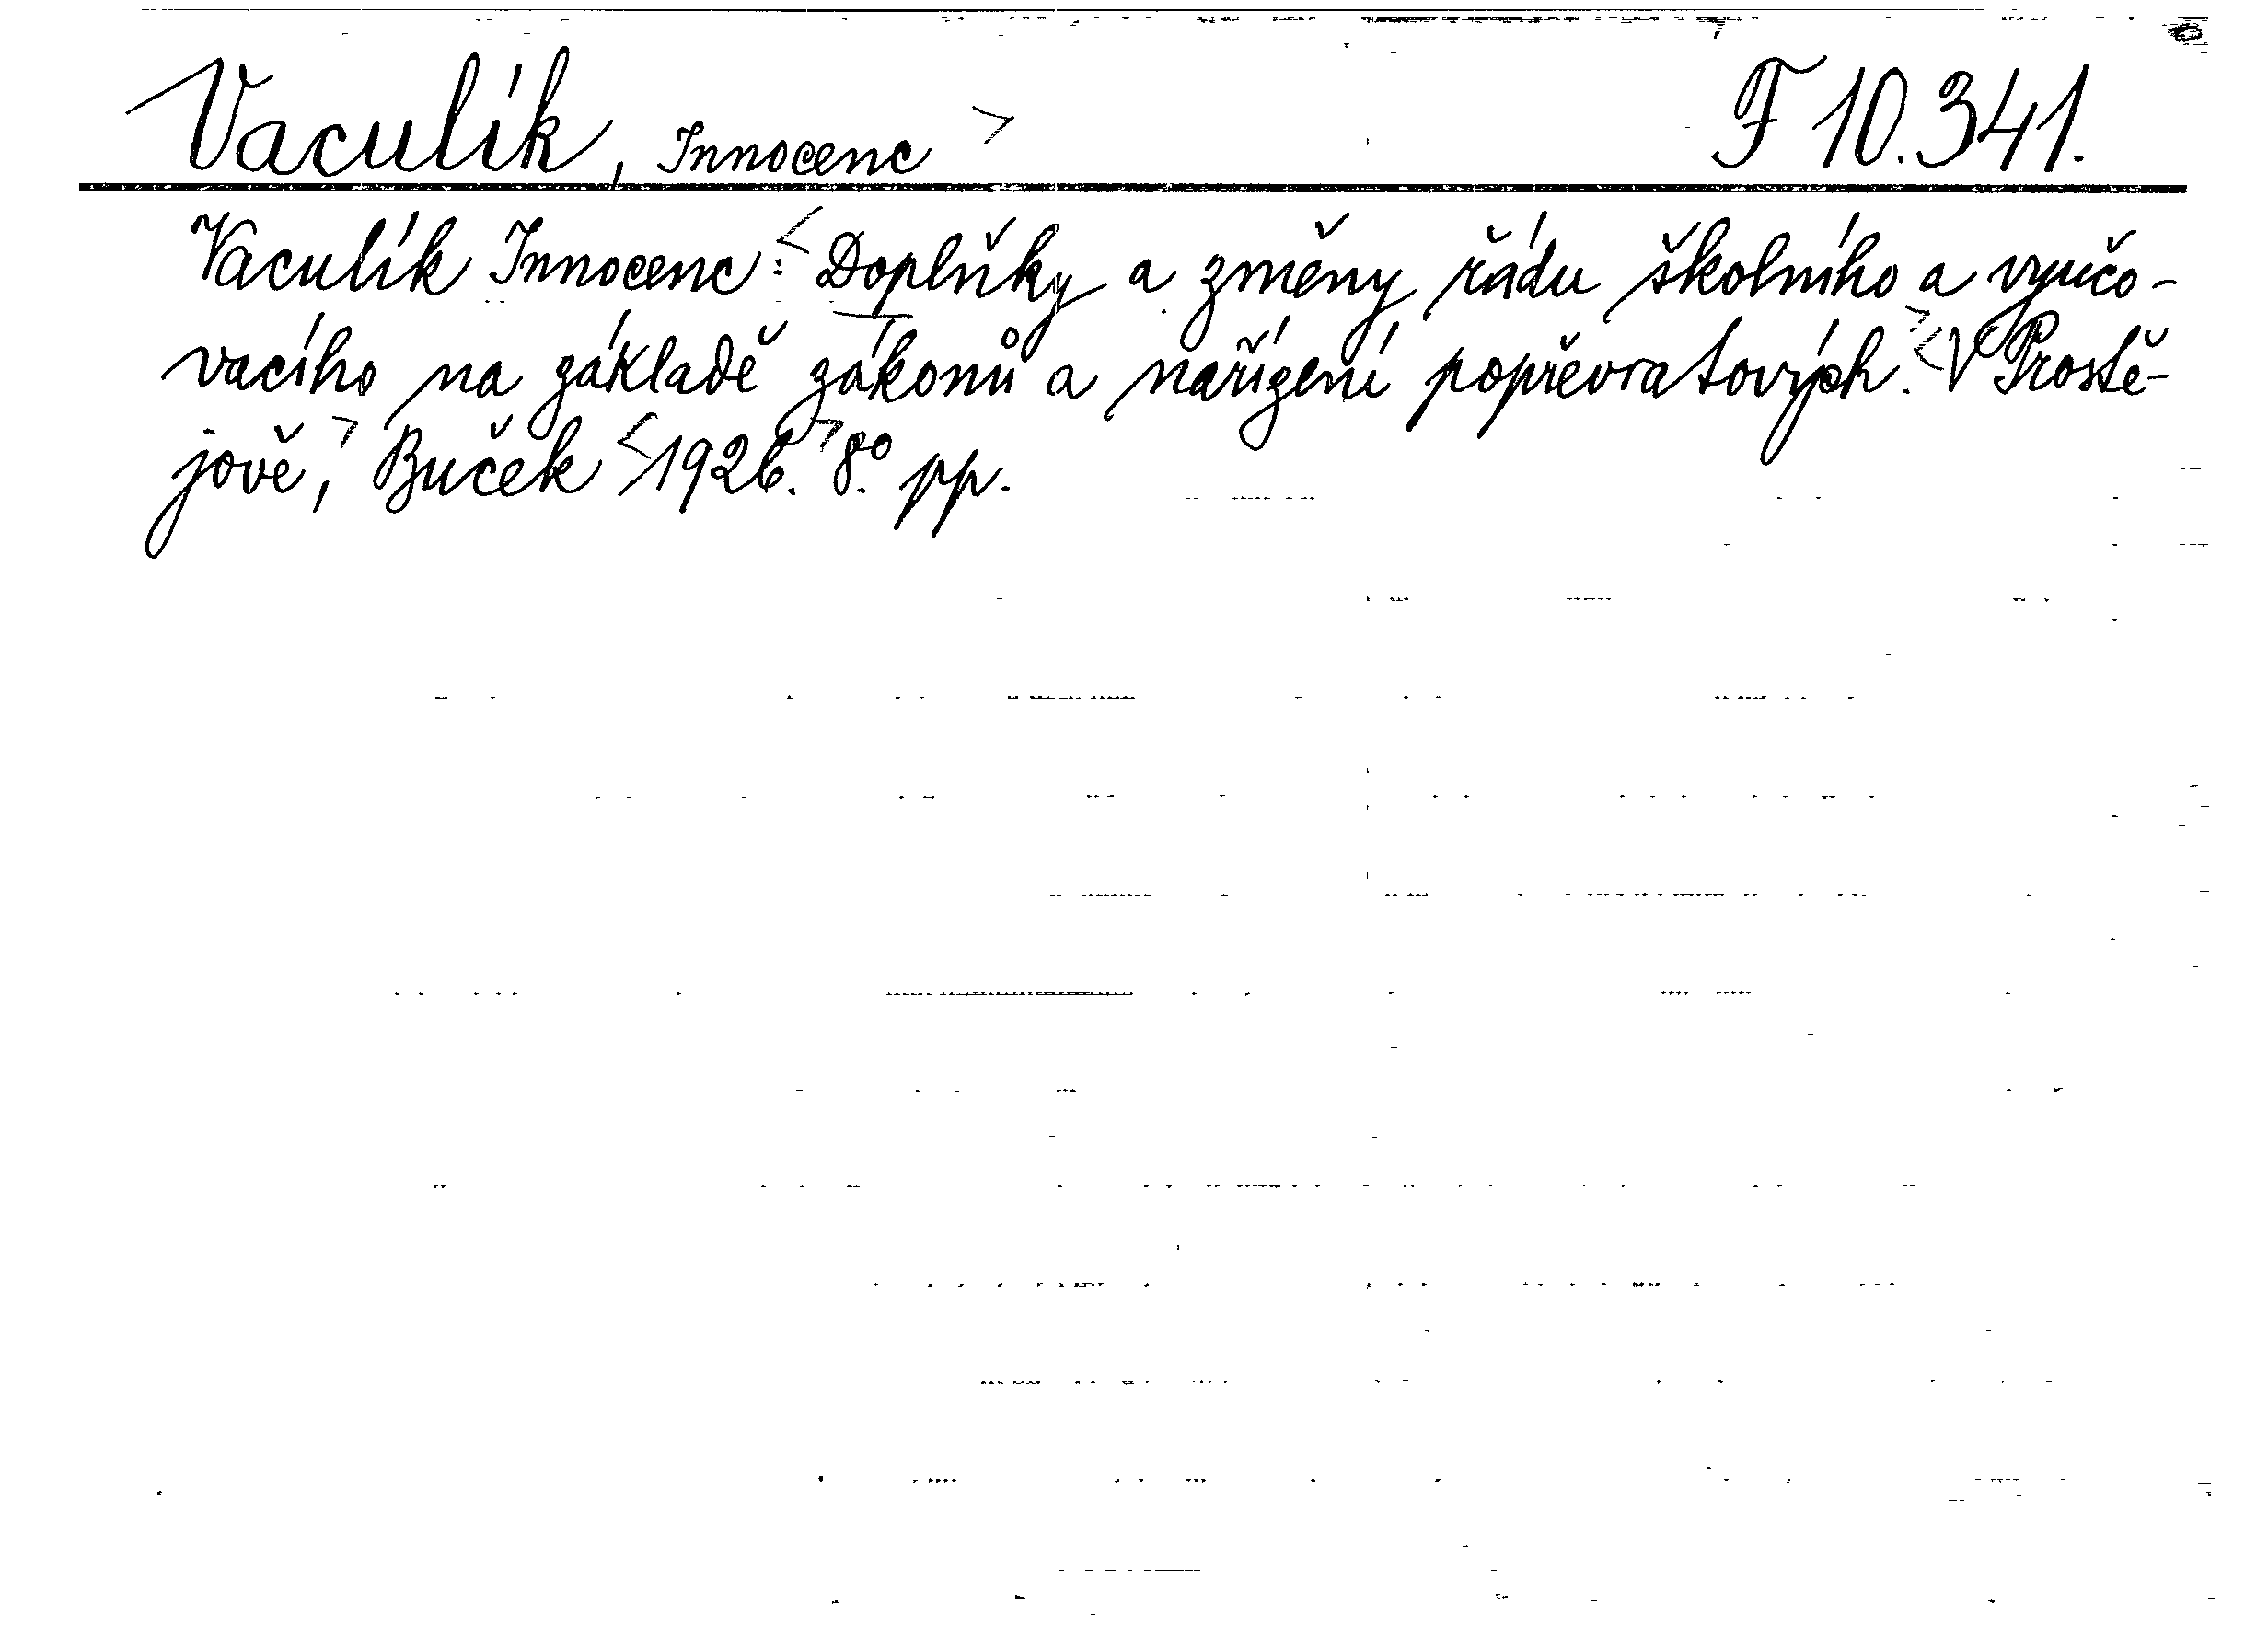 Vaculík, Innocenc > F 10.341.
Vaculík Innocenc: <Doplňky a změny řádu školního a vyučo-
vacího na základě zákonů a nařízení popřevratových.> <V Prostě-
jově,> Buček <1926.> 8.° pp.